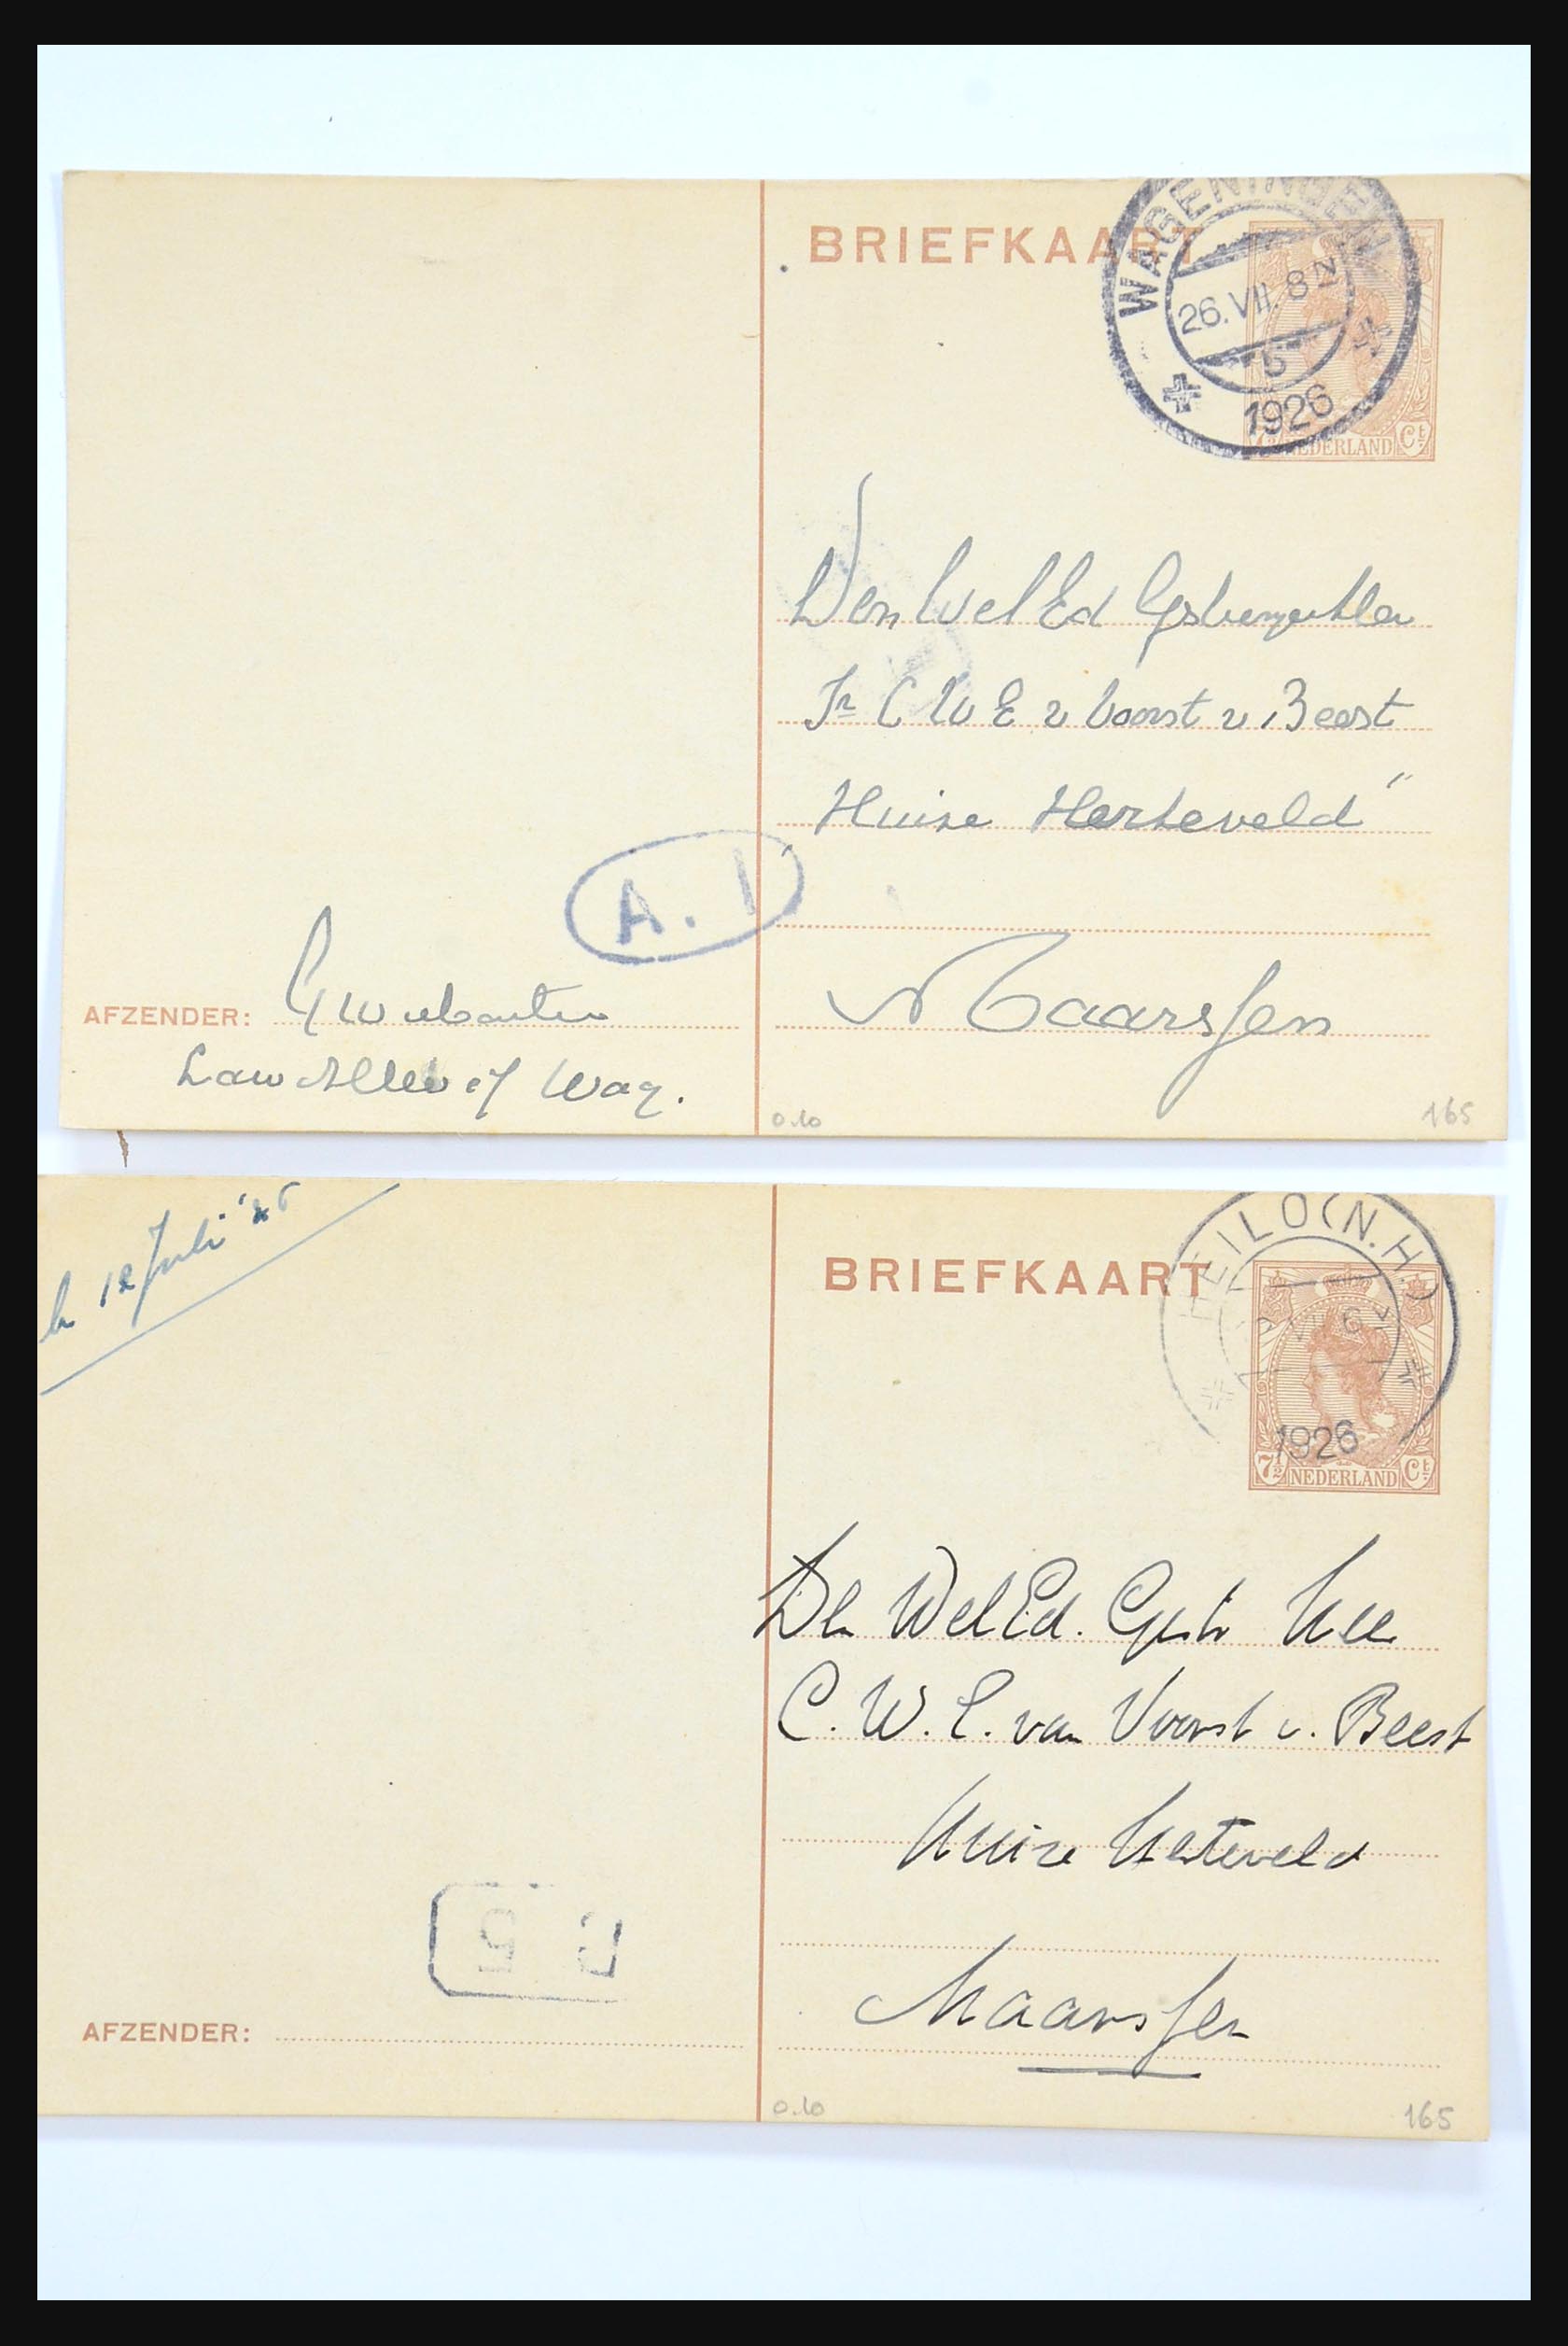 BRIEFKAART
WAGENINGEN
26.VII. 8N
5
1926
7½ NEDERLAND Ct
Den Wel Ed
Ir C W E v Voorst v Beest
Huize Herteveld"
A. 1
Maarssen
AFZENDER:
Law Wag.
0.10
165
12 Juli '26
BRIEFKAART
HEILO (N.H.)
1926
7½ NEDERLAND Ct
Den WelEd. Gestr Heer
C. W. E. van Voorst v. Beest
Huize Herteveld
Maarssen
AFZENDER:
0.10
165